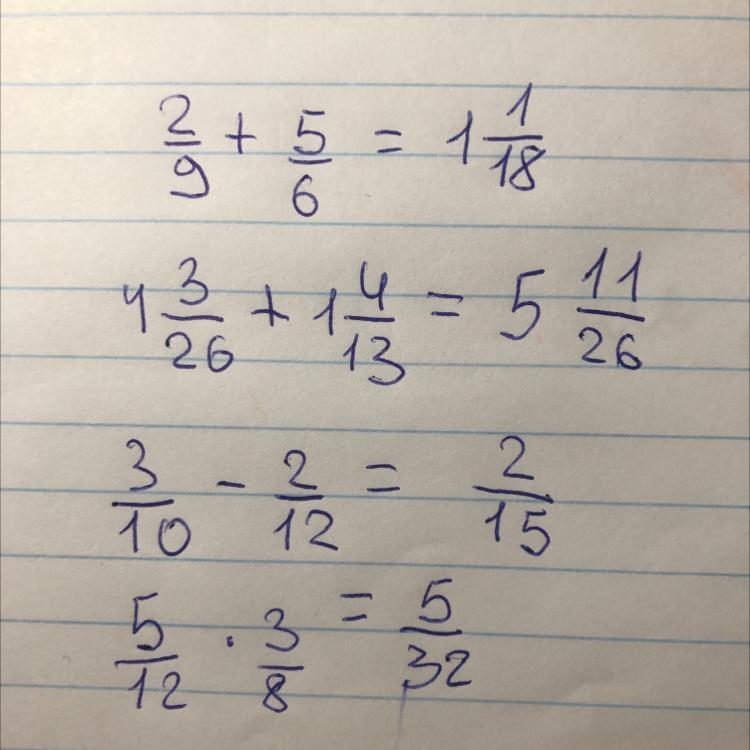 2/9 + 5/6 = 1 1/18
4 3/26 + 1 4/13 = 5 11/26
3/10 - 2/12 = 2/15
5/12 · 3/8 = 5/32